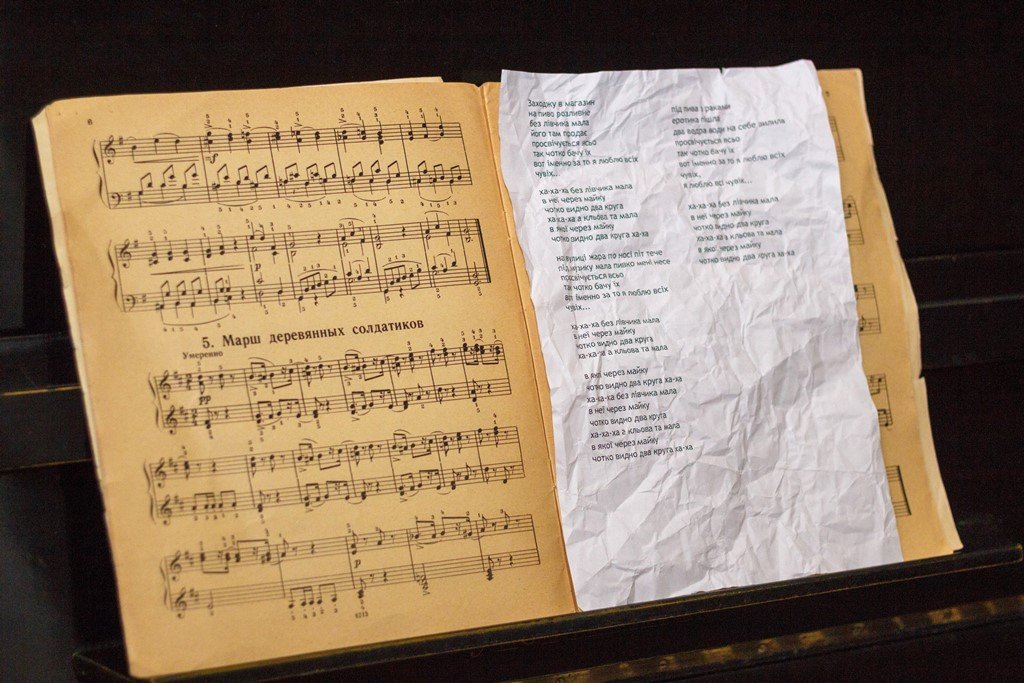 6
5. Марш деревянных солдатиков
Умеренно
pp
p
6213
Заходжу в магазин
на пиво розливне
без лівчика мала
його там продає
просвічується всьо
так чотко бачу їх
вот іменно за то я люблю всіх
чувіх..
ха-ха-ха без лівчика мала
в неї через майку
чотко видно два круга
ха-ха-ха а кльова та мала
в якої через майку
чотко видно два круга ха-ха
на вулиці жара по носі піт тече
під музику мала пивко мені несе
просвічується всьо
так чотко бачу їх
вот іменно за то я люблю всіх
чувіх...
ха-ха-ха без лівчика мала
в неї через майку
чотко видно два круга
ха-ха-ха а кльова та мала
в якої через майку
чотко видно два круга ха-ха
ха-ха-ха без лівчика мала
в неї через майку
чотко видно два круга
ха-ха-ха а кльова та мала
в якої через майку
чотко видно два круга ха-ха
під пива з раками
еротика пішла
два ведра води на себе вилила
просвічується всьо
так чотко бачу їх
вот іменно за то я люблю всіх
чувіх..
я люблю всі чувіх...
ха-ха-ха без лівчика мала
в неї через майку
чотко видно два круга
ха-ха-ха а кльова та мала
в якої через майку
чотко видно два круга ха-ха